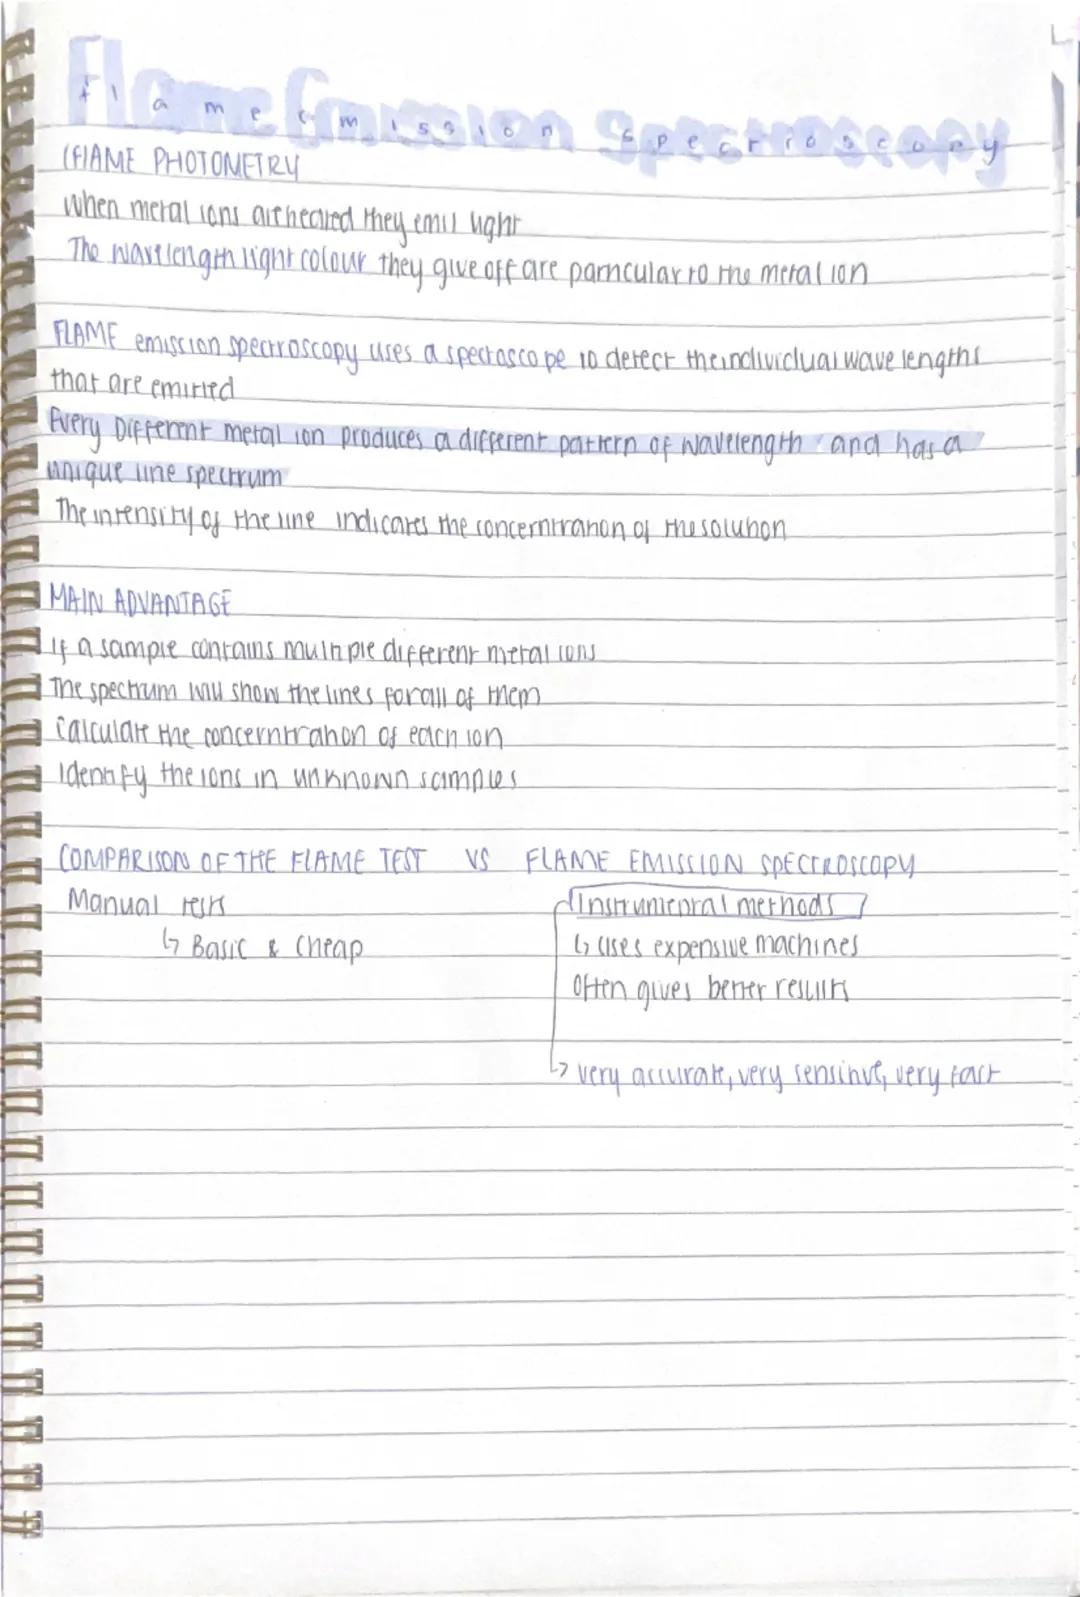 Flame Emission Spectroscopy
(FLAME PHOTOMETRY
When metal ions are heated they emit light
The wavelength light colour they give off are particular to the metal ion
FLAME emission spectroscopy uses a spectoscope to detect the individual wave lengths
that are emitted
Every Different metal ion produces a different pattern of wavelength and has a
unique line spectrum
The intensity of the line indicates the concerntration of the solution
MAIN ADVANTAGE
If a sample contains multiple different metal ions
The spectrum will show the lines for all of them
Calculate the concerntration of each ion
Identify the ions in unknown samples
COMPARISON OF THE FLAME TEST VS FLAME EMISSION SPECTROSCOPY
Manual tests Instrumental methods
↳ Basic & Cheap ↳ Uses expensive machines
Often gives better results
↳ very accurate, very sensitive, very fast